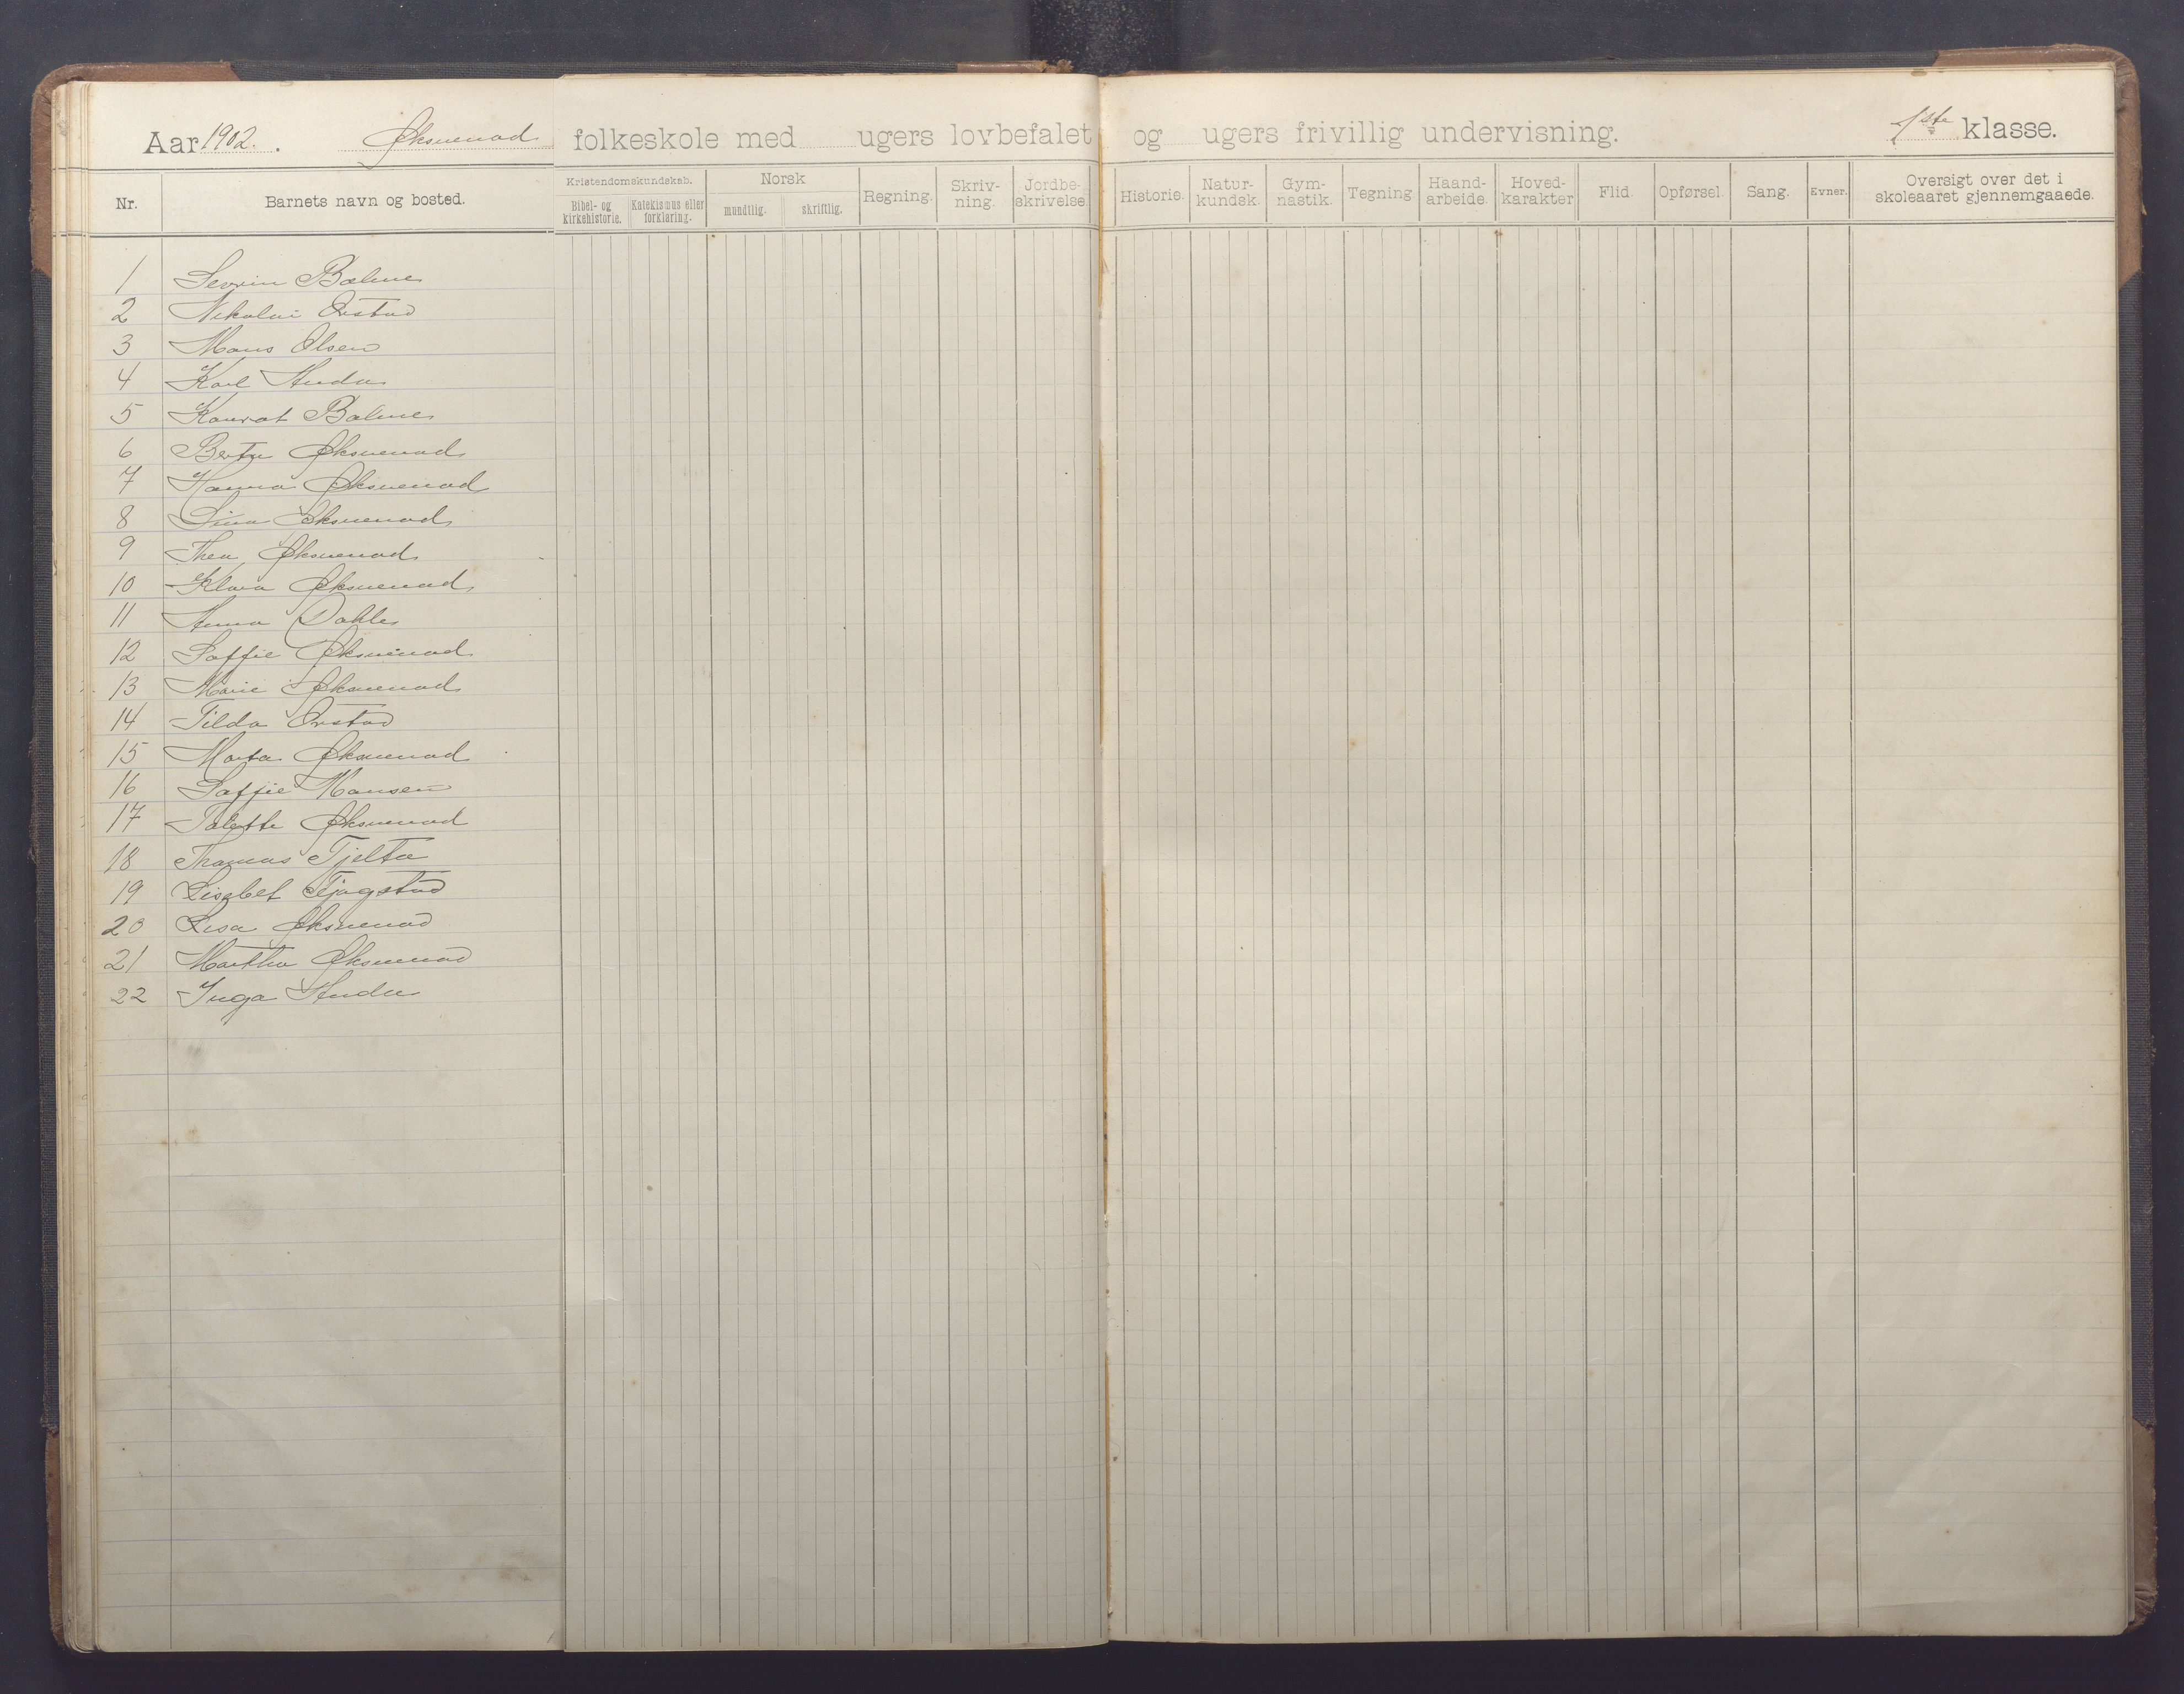 Aar 1902. Øksnevad folkeskole med ugers lovbefalet og ugers frivillig undervisning. 1ste klasse.
Nr. Barnets navn og bosted. Kristendomskundskab. Bibel- og kirkehistorie. Katekismus eller forklaring. Norsk mundtlig. skriftlig. Regning. Skriv-ning. Jordbe-skrivelse. Historie. Natur-kundsk. Gym-nastik. Tegning Haand-arbeide. Hoved-karakter Flid. Opførsel. Sang. Evner. Oversigt over det i skoleaaret gjennemgaaede.
1 Sevrin Bølme
2 Nikolai Orstad
3 Mons Olsen
4 Karl Anda
5 Konrat Bølme
6 Berta Øksnevad
7 Hanna Øksnevad
8 Lina Øksnevad
9 Thea Øksnevad
10 Klara Øksnevad
11 Anna Dahle
12 Saffie Øksnevad
13 Marie Øksnevad
14 Tilda Orstad
15 Marta Øksnevad
16 Saffie Hansen
17 Talette Øksnevad
18 Thomas Tjelta
19 Lisabet Tjøgstad
20 Lisa Øksnevad
21 Martha Øksnevad
22 Inga Anda